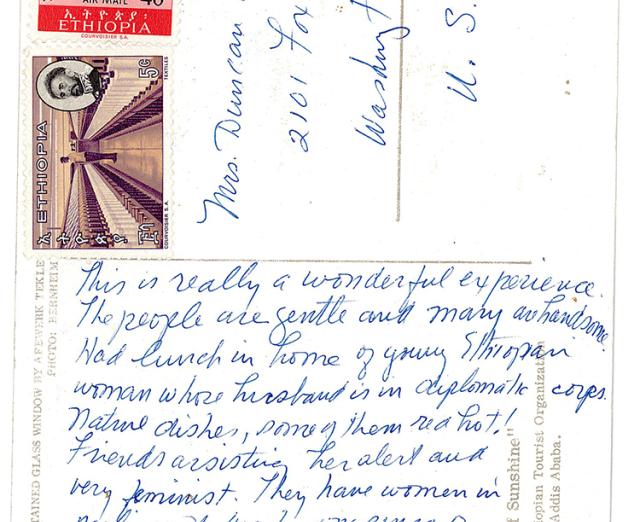 AIR MAIL 40
ኢትዮጵያ
ETHIOPIA
COURVOISIER S.A.
ETHIOPIA
ኢትዮጵያ
5¢
TEXTILES
COURVOISIER S.A.
Mrs. Duncan
2101 Fox
U. S.
TAINED GLASS WINDOW BY AFEWERK TEKLE
PHOTO: BERNHEIM
This is really a wonderful experience.
The people are gentle and many are handsome.
Had lunch in home of young Ethiopian
woman whose husband is in diplomatic corps.
Native dishes, some of them red hot!
Friends assisting her alert and
very feminist. They have women in
f Sunshine"
iopian Tourist Organization
Addis Ababa.